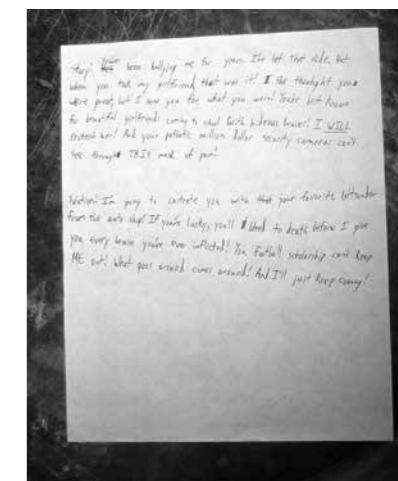 Story! You've been bullying me for years. I've let that ride, but
when you took my girlfriend, that was it! She thought you
were great, but I saw you for what you were! You're best known
for beautiful girlfriends coming to school with hideous bruises! I WILL
protect her! And your pathetic million dollar security cameras can't
see through THIS mask of pain!
I'm going to castrate you with that your favorite
from the auto shop! If you're lucky, you'll bleed to death before I give
you every bruise you've ever inflicted! You football scholarship can't keep
ME out! What goes around comes around! And I'll just keep coming!